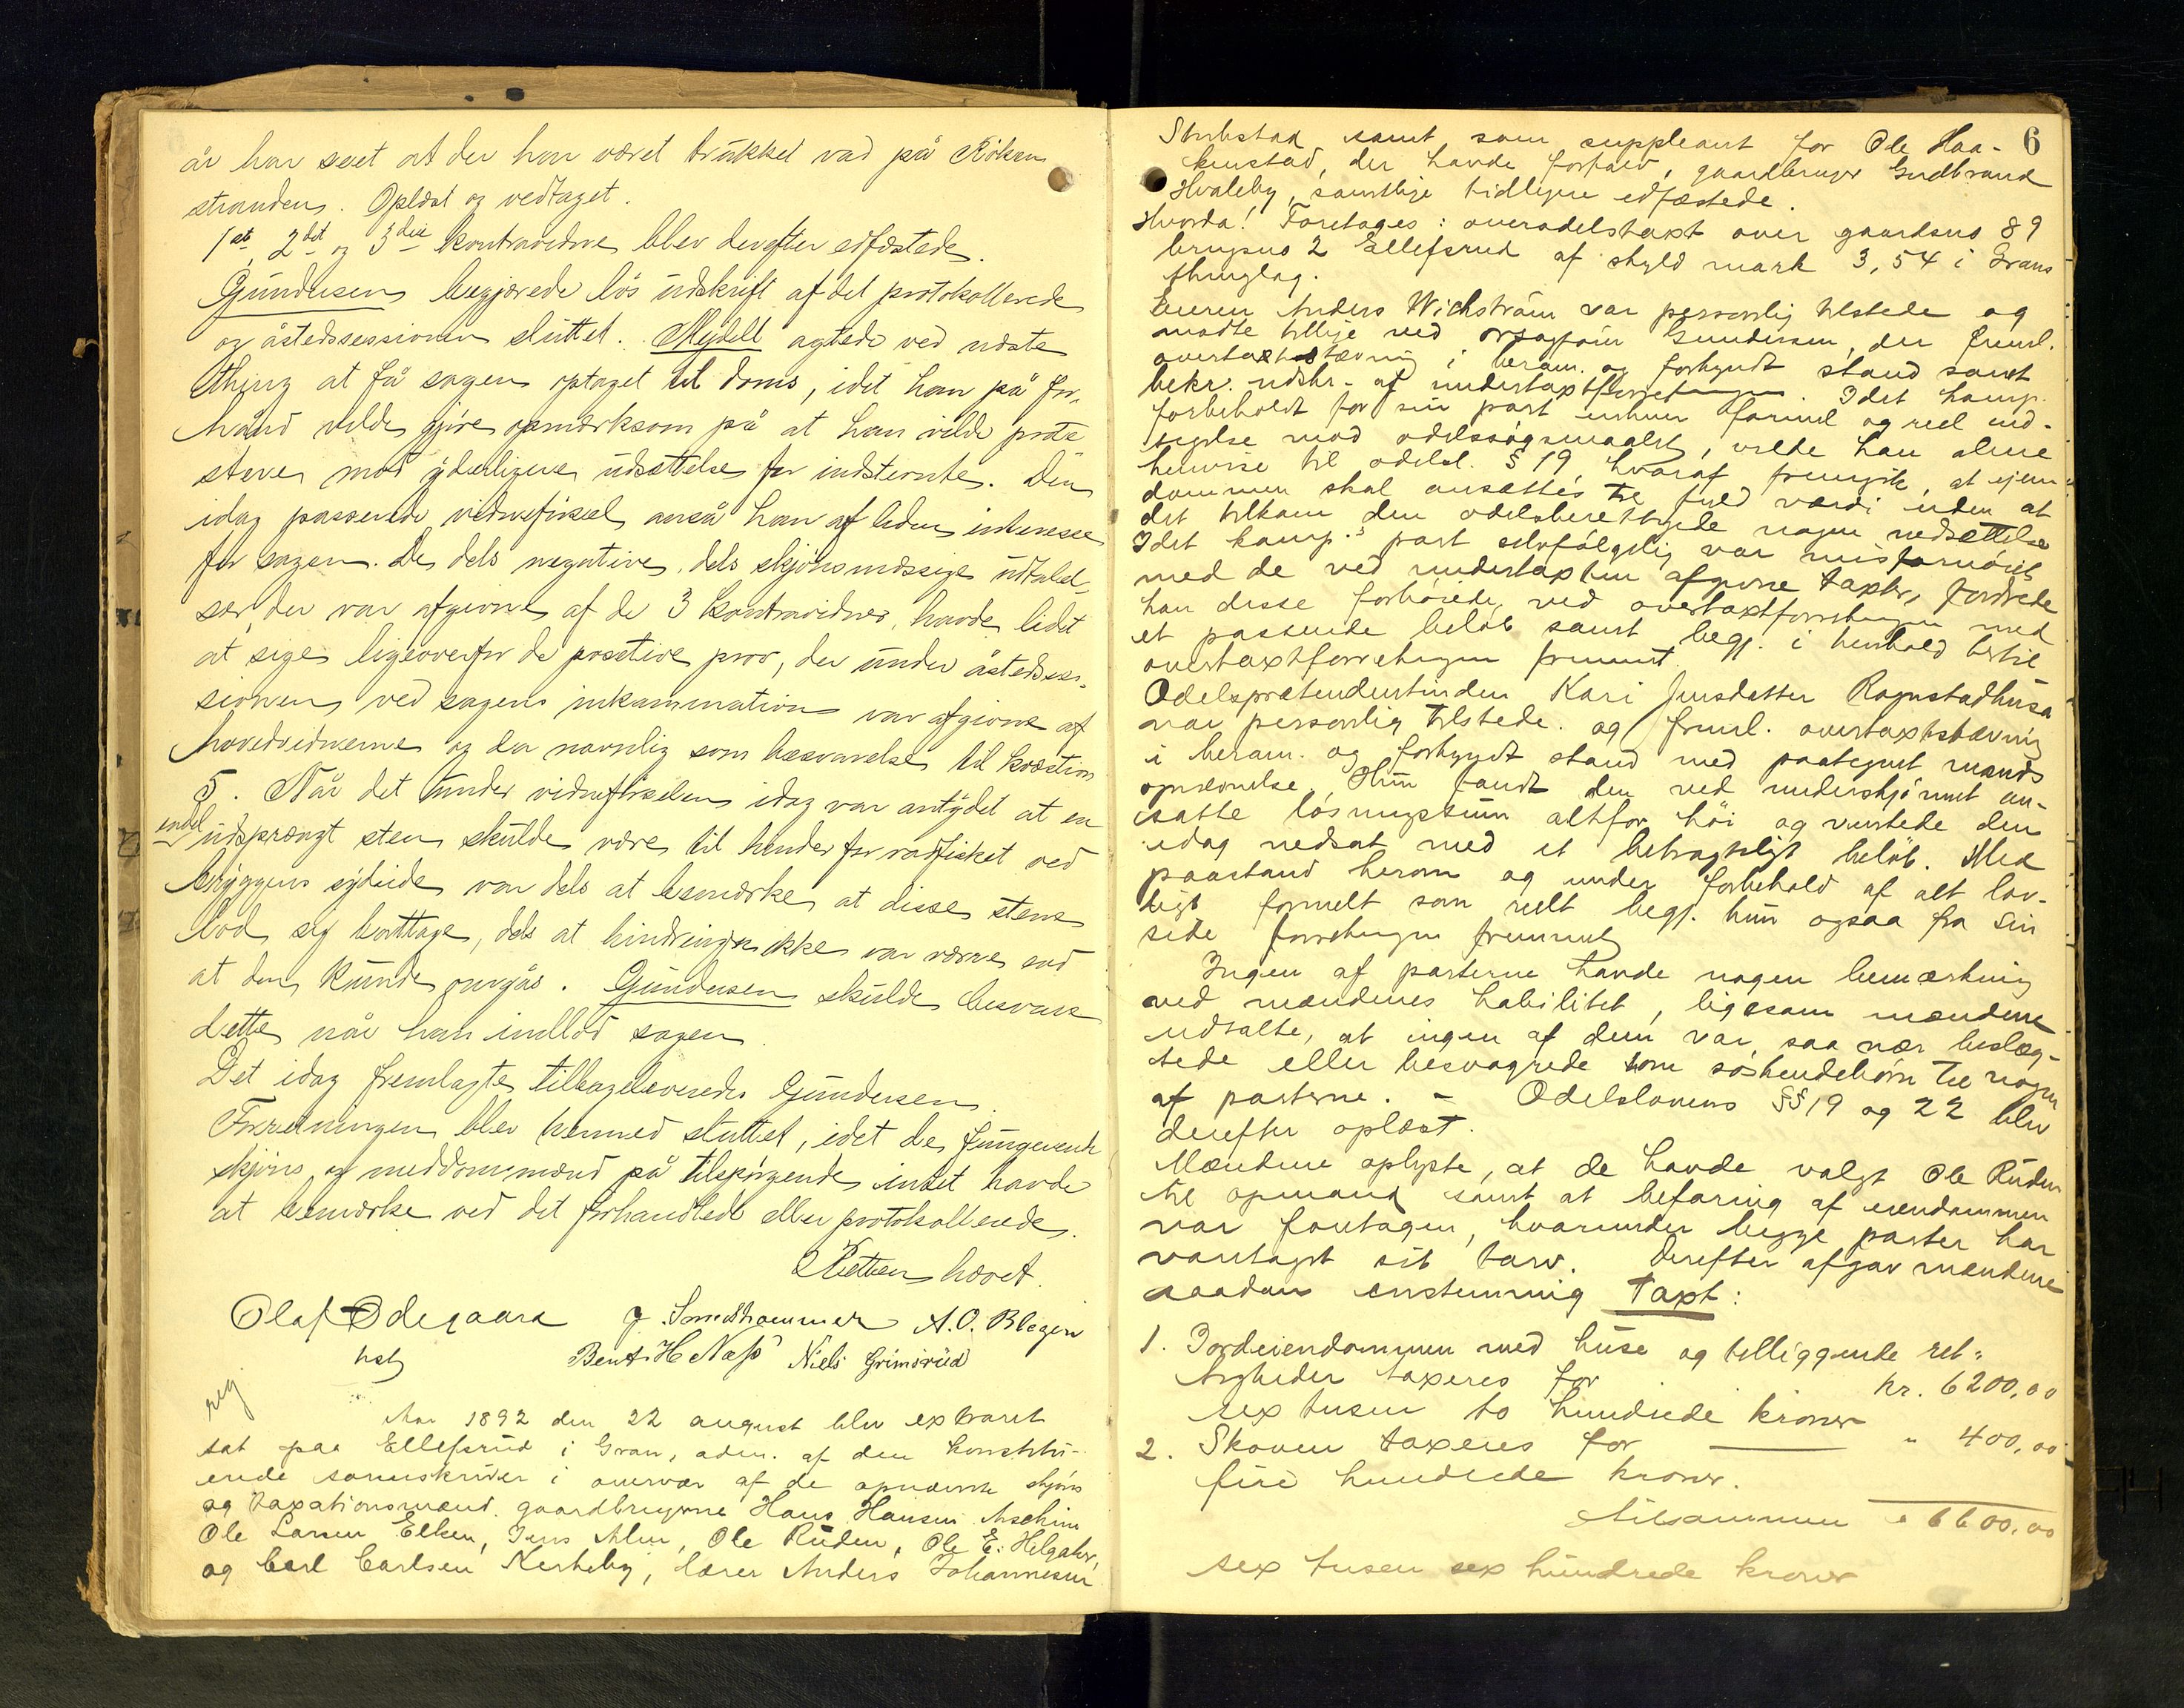 år har seet at der har været trukket vad på Röken
stranden. Oplæst og vedtaget.
1ste, 2det og 3die kontravidne blev derefter edfæstede.
Gundersen begjærede lös udskrift af det protokollerede
og åstedssessionen sluttet. Mydell agtede ved næste
thing at få sagen optaget til doms, idet han på for-
hånd vilde gjöre opmærksom på at han vilde prote
stere mod yderligere udsættelse for indstevnte. Den
idag passerede vidneförsel anså han af liden interesse
for sagen. De dels negative, dels skjönsmæssige udtalel-
ser, der var afgivne af de 3 kontravidner, havde lidet
at sige ligeoverfor de positive prov, der under åstedsses-
sionen ved sagens inkamination var afgivne af
hovedvidnerne og da navnlig som besvarelse til kvæstion
5. Når det under vidneförselen idag var antydet at en
endel udsprængt sten skulde være til hinder for vadfisket ved
bryggens sydside var dels at bemærke at disse stene
lod sig borttage, dels at hindringen ikke var værre end
at den kunde omgås. Gundersen skulde besvare
dette når han indlod sagen.
Det idag fremlagte tilbageleveredes Gundersen.
Forretningen blev hermed sluttet, idet de fungerende
skjöns og meddomsmænd på tilspörgende intet havde
at bemærke ved det forhandlede eller protokollerede.
Retten hævet.
Olaf Ödegaard J. Smedshammer A.O. Blegen
Bent H Næss Niels Grimsrud
Aar 1892 den 22 august blev extraret
sat paa Ellefsrud i Gran, adm. af den konstitu-
erede sorenskriver i overvær af de opnævnte skjöns
og taxationsmænd gaardbrugerne Hans Hansen Aschim
Ole Larsen Elken, Jens Alm, Ole Ruden, Ole E. Helgaker,
og Carl Carlsen Kerkeby, lærer Anders Johannesen
6
Stubstad samt som suppleant for Ole Haa-
kenstad, der havde forfald, gaardbruger Gudbrand
Hvaleby, samtlige tidligere edfæstede.
Hvorda! Foretages: overodelstaxt over gaardsno 89
brugsno 2 Ellefsrud af skyld mark 3,54 i Grans
thinglag.
Eieren Anders Wichström var personlig tilstede og
mødte tillige ved orsagförer Gundersen, der fremL.
overtaxtstævning i beram. og forkyndt stand samt
bekr. udskr. af undertaxtforretningen. Idet komp.
forbeholdt for sin part enhver formel og reel ind-
sigelse mod odelssögsmaalet, vilde han alene
henvise til odelsl. § 19, hvoraf fremgik, at ejen-
dommen skal ansættes til fuld værdi uden at
det tilkom den odelsberettigede nogen nedsættelse
Idet komp.s part selvfölgelig var misfornöiet
med de ved undertaxten afgivne taxter, fordrede
han disse forhöiede ved overtaxtforretningen med
et passende belöb samt begj. i henhold hertil
overtaxtforretningen fremmet.
Odelsprætendentinden Kari Jensdatter Rognstadhusa
var personlig tilstede. og freml. overtaxtstævning
i beram. og forkyndt stand med paategnet mænds
opnævnelse. Hun fandt den ved underskjönnet an-
satte lösningssum altfor höi og ventede den
idag nedsat med et betragteligt belöb. Med
paastand herom og under forbehold af alt lov-
ligt formelt som reelt begj. hun ogsaa fra sin
side forretningen fremmet
Ingen af parterne havde nogen bemærkning
ved mændenes habilitet, ligesom mændene
udtalte, at ingen af dem var saa nær beslæg-
tede eller besvogrede som söskendebörn til nogen
af parterne. - Odelslovens §§ 19 og 22 blev
derefter oplæst.
Mændene oplyste, at de havde valgt Ole Ruden
til opmand samt at befaring af eiendommen
var foretagen, hvorunder begge parter har
varetaget sit tarv. Derefter afgav mændene
saadan enstemmig Taxt:
1. Jordeiendommen med huse og tilliggende ret-
tigheder taxeres for kr. 6200,00
sex tusen to hundrede kroner
2. Skoven taxeres for " 400,00
fire hundrede kroner.
Tilsammen " 6600,00
sex tusen sex hundrede kroner